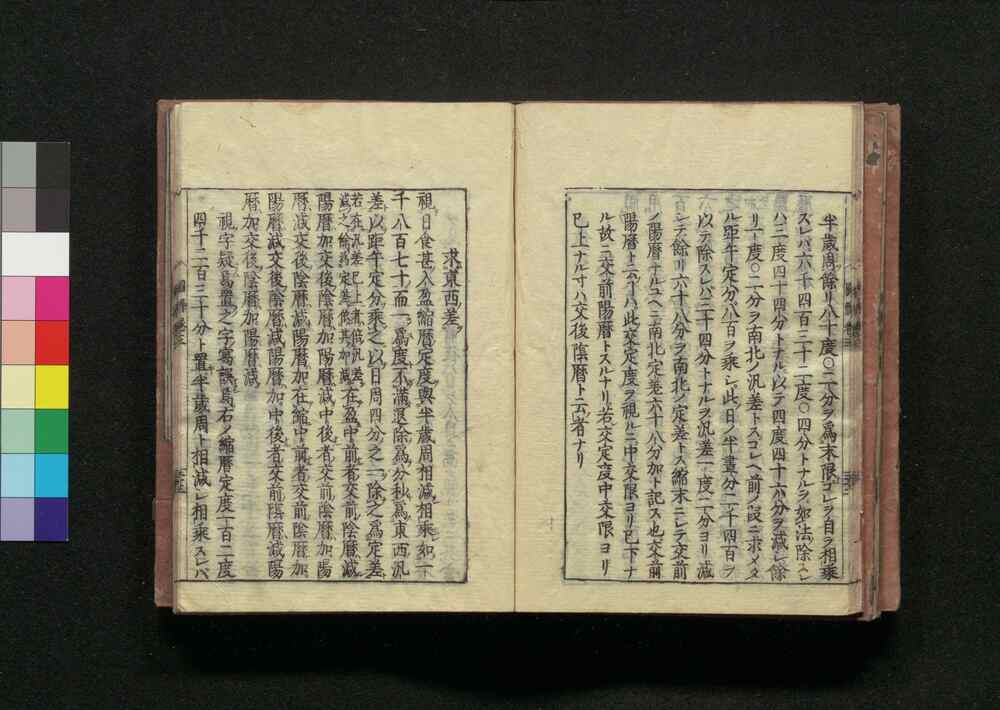 半歳周餘リ八十度〇二分ヲ爲末限コレヲ自ラ相乗
スレバ六千四百三十二度〇四分トナルヲ如法除スレ
ハ三度四十四分トナル以テ四度四十六分ヲ減レ餘
リ一度〇二分ヲ南北ノ汎差トスコレヘ前ノ段ニ求メタ
ル距午定分八百ヲ乗レ此日ノ半晝分二千四百ヲ
以テ除スレバ三十四分トナルヲ汎差一度二分ヨリ減
シテ餘リ六十八分ヲ南北ノ定差トス縮末ニレテ交前
ノ陽暦ナルユヘニ南北ノ定差六十八分加ト記ス也交前
陽暦ト云ハ此交定度ヲ視ルニ中交限ヨリ已下ナ
ル故ニ交前陽暦トスルナリ若交定度中交限ヨリ
已上ナル寸ハ交後陰暦ト云者ナリ
求東西差
視日食甚入盈縮暦定度與半歳周相減相乗如一
千八百七十而一爲度不滿退除爲分秒爲東西汎
差以距午定分乗之以日周四分之一除之爲定差
若在汎差已上者倍汎差
減之餘爲定差依其加減
在盈中前者交前陰暦減
陽暦加交後陰暦加陽暦減中後者交前陰暦加陽
暦減交後陰暦減陽暦加在縮中前者交前陰暦加
陽暦減交後陰暦減陽暦加中後者交前陰暦減陽
暦加交後陰暦加陽暦減
視字疑易置之字寫誤爲右ノ縮暦定度一百二度
四十二百三十分ト置半歳周ト相減レ相乗スレバ